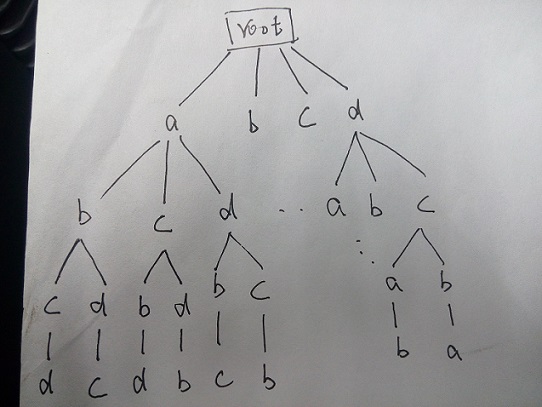 root
a b c d
b c d .. a b c
:.
c d b d b c a b
d c d b c b b a